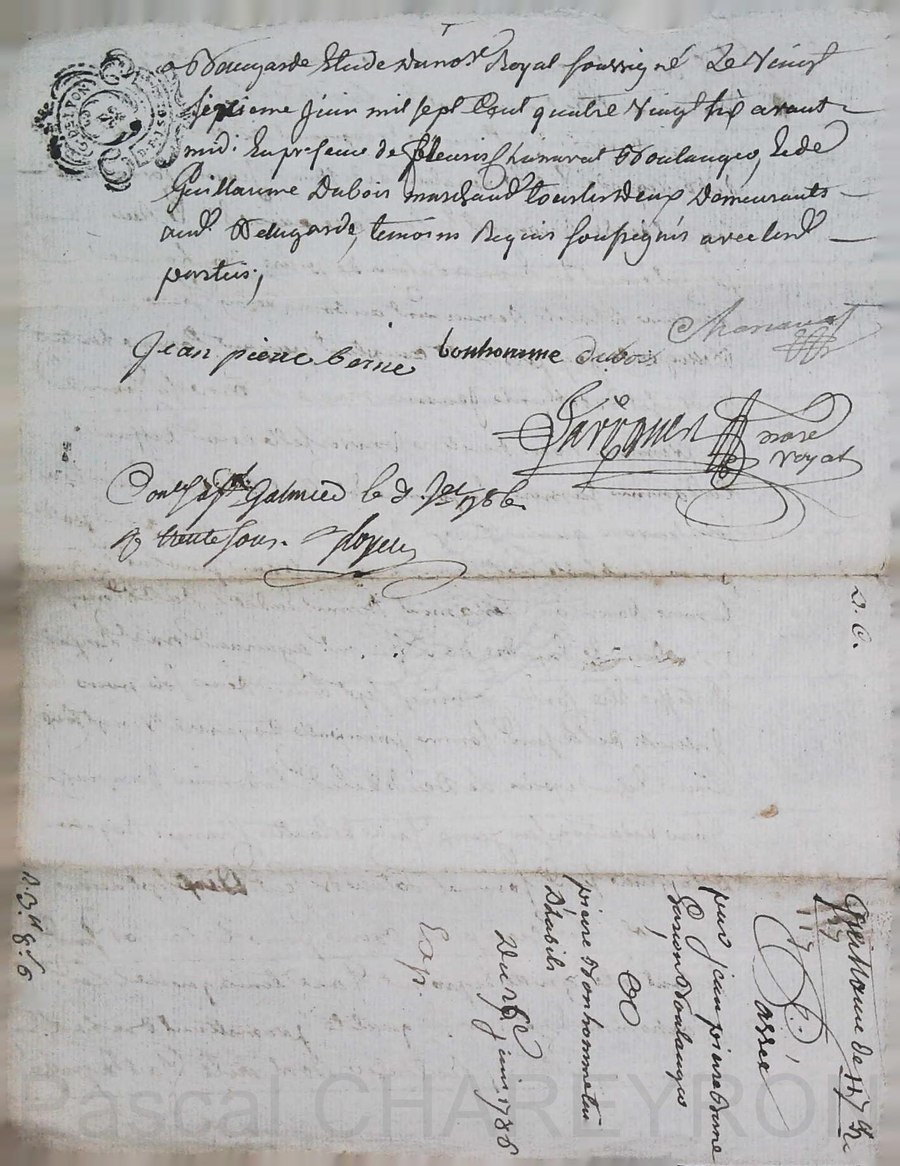 a Bellegarde Etude du no.re Royal soussigné Le Vingt
septieme juin mil sept Cent quatre Vingt six avant
midi En presence de fleuris Chanavat Boulanger, Et de
Guillaume Dubois marchand tous les deux Demeurants
aud. Bellegarde, temoins Requis soussignés avec les d.
parties;
Chanavat
jean pierre berne bonhomme dubois
no.re
royal
Con.lé a St. Galmier le 3 j.et 1786
R. trente sous.
2. C.
quittance de 117 #
117 #
passée
par jean pierre Berne
Garçon Boulanger
a
pierre Bonhomme tu
D'habits
Du 27e juin 1786
Exp.
Pascal CHAREYRON